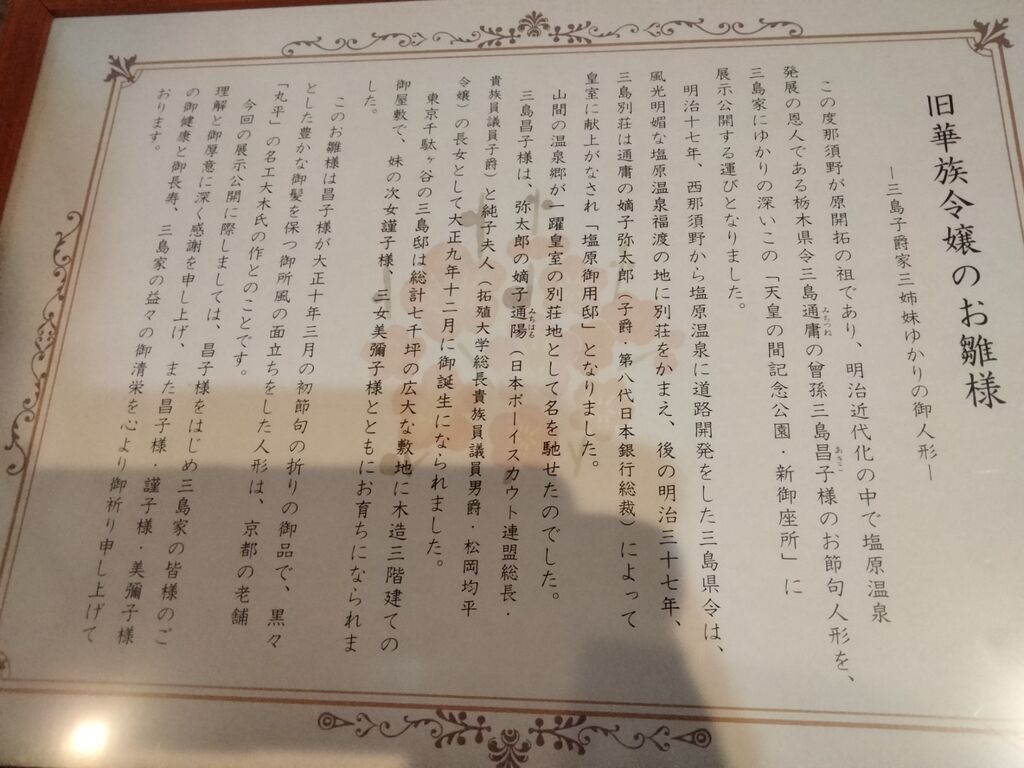 旧華族令嬢のお雛様
―三島子爵家三姉妹ゆかりの御人形―
この度那須野が原開拓の祖であり、明治近代化の中で塩原温泉
発展の恩人である栃木県令三島通庸の曾孫三島昌子様のお節句人形を、
みちつね
あきこ
三島家にゆかりの深いこの「天皇の間記念公園・新御座所」に
展示公開する運びとなりました。
明治十七年、西那須野から塩原温泉に道路開発をした三島県令は、
風光明媚な塩原温泉福渡の地に別荘をかまえ、後の明治三十七年、
三島別荘は通庸の嫡子弥太郎（子爵・第八代日本銀行総裁）によって
皇室に献上がなされ「塩原御用邸」となりました。
山間の温泉郷が一躍皇室の別荘地として名を馳せたのでした。
三島昌子様は、弥太郎の嫡子通陽（日本ボーイスカウト連盟総長・
みちはる
貴族院議員子爵）と純子夫人（拓殖大学総長貴族院議員男爵・松岡均平
令嬢）の長女として大正九年十二月に御誕生になられました。
東京千駄ヶ谷の三島邸は総計七千坪の広大な敷地に木造三階建ての
御屋敷で、妹の次女謹子様、三女美彌子様とともにお育ちになられま
した。
このお雛様は昌子様が大正十年三月の初節句の折りの御品で、黒々
とした豊かな御髪を保つ御所風の面立ちをした人形は、京都の老舗
「丸平」の名工大木氏の作とのことです。
今回の展示公開に際しましては、昌子様をはじめ三島家の皆様のご
理解と御厚意に深く感謝を申し上げ、また昌子様・謹子様・美彌子様
の御健康と御長寿、三島家の益々の御清栄を心より御祈り申し上げて
おります。